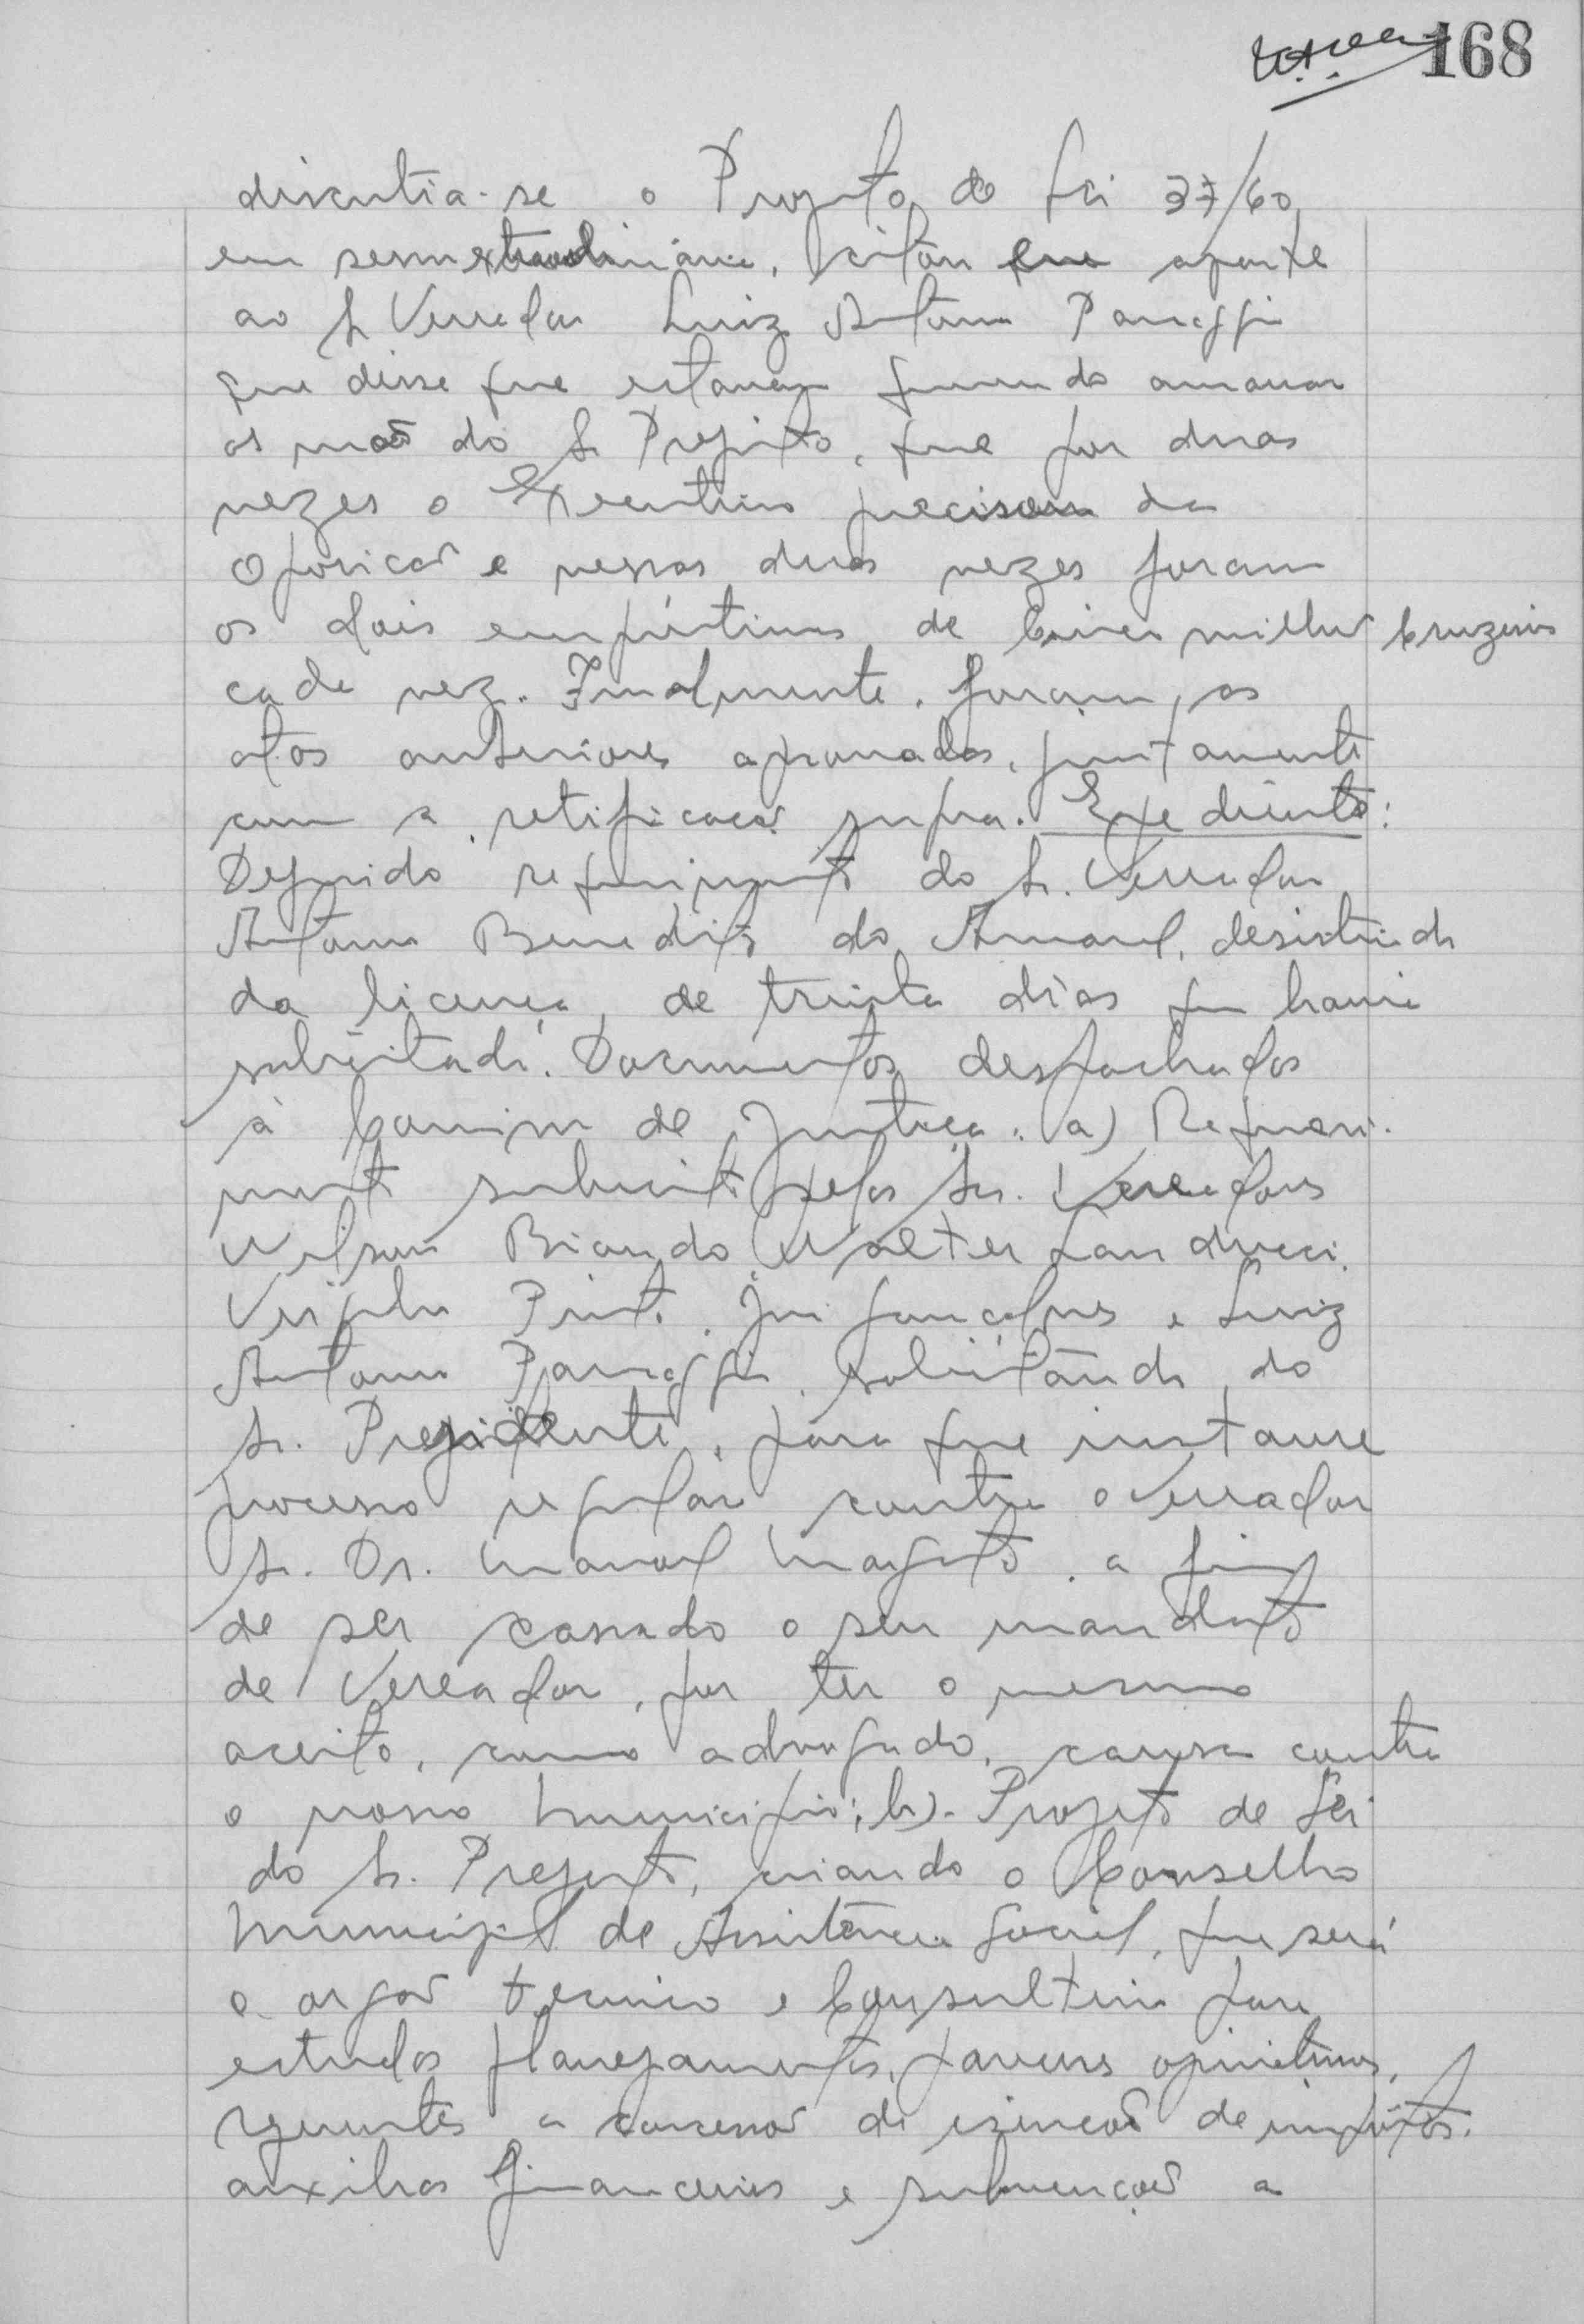 168
discutia-se o Projeto de Lei 37/60,
em sessão extraordinária. aparte
ao Sr Vereador Luiz Antonio
que disse que estavam querendo amarrar
as mãos do Sr Prefeito, que por duas
vezes o Executivo precisou da
Oposição e nessas duas vezes foram
os dois empréstimos de Cinco milhões Cruzeiros
cada vez. Finalmente, foram, as
atas anteriores aprovadas, juntamente
com a retificação supra. Expediente:
Deferido requerimento do Sr. Vereador
Antonio Benedito do Amaral, desistindo
da licença, de trinta dias que havia
solicitado. Documentos despachados
à Comissão de Justiça: a) Requeri-
mento subscrito pelos Srs. Vereadores
Nilson Biondo, Walter Landucci,
Pinto, Gonçalves e Luiz
Antonio solicitando do
Sr. Presidente, para que instaure
processo regular contra o Vereador
Sr. Dr. Manoel a fim
de ser cassado o seu mandato
de Vereador, por ter o mesmo
aceito, como advogado, causa contra
o nosso Município; b)- Projeto de Lei
do Sr. Prefeito, criando o Conselho
Municipal de Assistência Social, que será
o orgão técnico e Consultivo para
estudos planejamentos, pareceres opinativos,
a concessão de isenção de impôstos,
auxilios financeiros e subvenções a